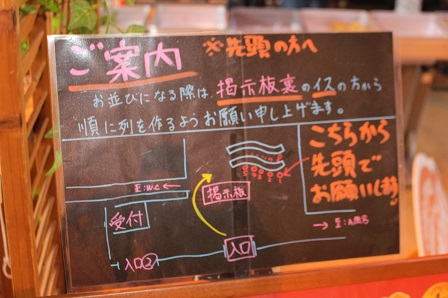 ご案内
※先頭の方へ
お並びになる際は掲示板裏のイスの方から
順に列を作るようお願い申し上げます。
こちらから
先頭で
お願いします
至:WC←
掲示板
受付
入口②
入口
→至: